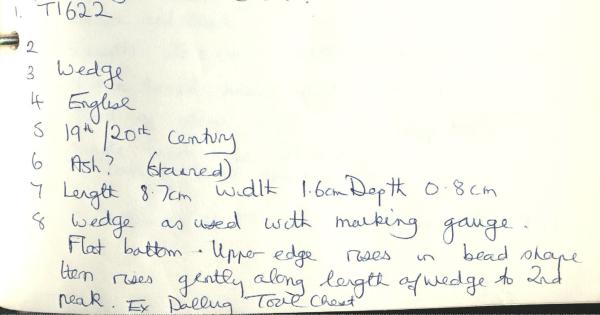 1. T1622
2
3 Wedge
4 English
5 19th/20th century
6 Ash? (stained)
7 Length 8.7cm Width 1.6cm Depth 0.8cm
8 Wedge as used with marking gauge.
Flat bottom. Upper edge rises in bead shape
then rises gently along length of wedge to 2nd
peak. Ex Dalling Tool Chest